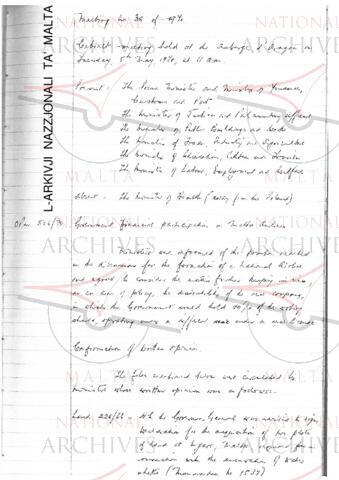 L-ARKIVJI NAZZJONALI TA' MALTA
NATIONAL ARCHIVES MALTA
Meeting No 38 of 1970
Cabinet meeting held at the Auberge d'Aragon on
Tuesday 5th May, 1970, at 11 am.
Present - The Prime Minister and Minister of Finance,
Customs and Port
The Minister of Justice and Parliamentary Affairs
The Minister of Public Buildings and Works
The Minister of Trade, Industry and Agriculture
The Minister of Education, Culture and Tourism
The Minister of Labour, Employment and Welfare
Absent - The Minister of Health (away from the Island)
Government financial participation in Malta Airlines
Ministers were informed of the progress reached
in the discussions for the formation of a National Airline
and agreed to consider the matter further keeping in view,
as an issue of policy, the desirability of the new company,
in which the Government would hold of the
shares, operating under a different name
Confirmation of written opinion
The files mentioned below were circulated to
Ministers whose written opinion was as follows:-
Land 226/66 - H.E. the Governor General was advised to sign
declaration for the acquisition of two plots
of land at required in
connection with the
(Memorandum No 1537)